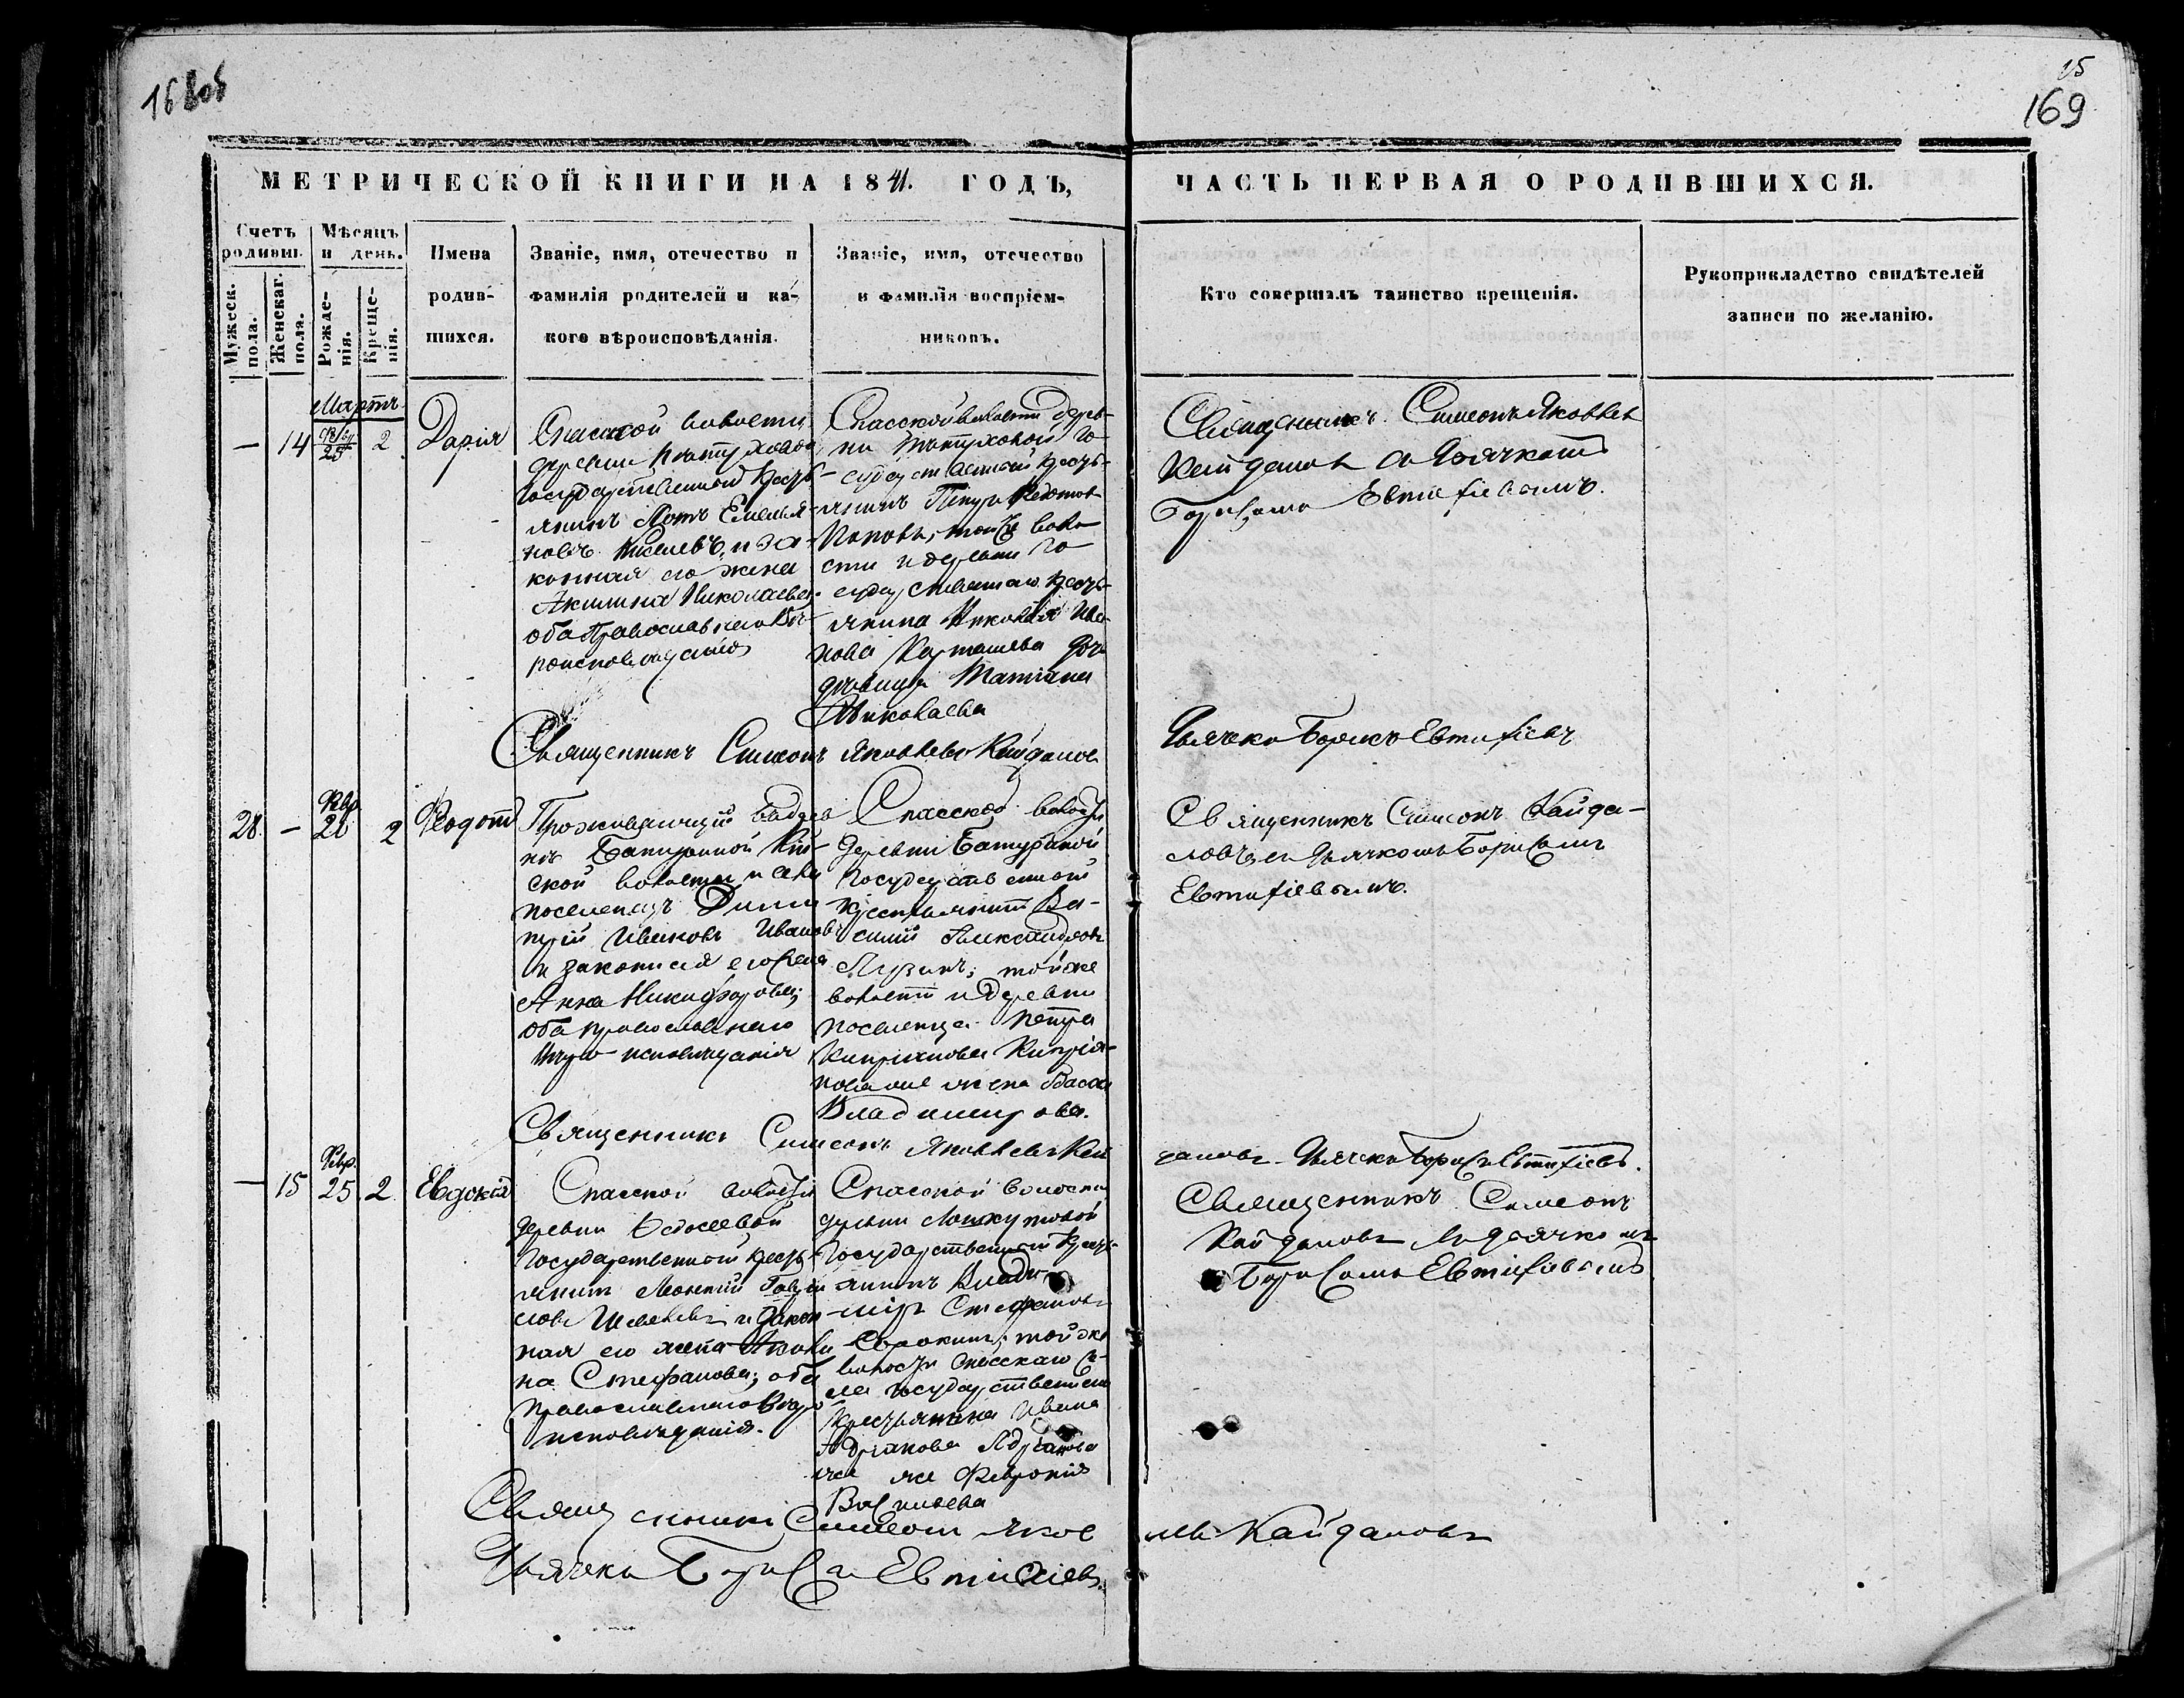 15
169
МЕТРИЧЕСКОЙ КНИГИ НА 1841. ГОДЪ,
ЧАСТЬ ПЕРВАЯ О РОДИВШИХСЯ.
Счетъ родивш.
Мужеск. пола.
Женскаг. пола.
Мѣсяцъ и день.
Рожде-нія.
Креще-нія.
Имена
родив-
шихся.
Званіе, имя, отечество и
фамилія родителей и ка-
кого вѣроисповѣданія.
Званіе, имя, отечество
и фамилія воспріем-
никовъ.
Кто совершалъ таинство крещенія.
Рукоприкладство свидѣтелей
записи по желанію.
Мартъ
— 14 25 2 Дарія
Спасской волости
деревни
Государственной кресть-
янинъ Емелья-
новъ Киселевъ, и за-
конная его жена
Акилина Николаева
оба Православнаго Вѣ-
роисповѣданія
Спасской волости дерев-
ни
сударственной кресть-
янинъ Петръ
Поповъ, той же воло-
сти и деревни Го-
сударственнаго кресть-
янина Николая Ива-
нова Карташева доч
дѣвица Татіана
Николаева
Священникъ Симеонъ Яковлевъ
Кайдановъ съ Дьячкомъ
Борисомъ Евтифіевымъ.
Священникъ Симеонъ Яковлевъ Кайдановъ
Дьячекъ Борисъ Евтифіевъ
28. — Февр. 26 2 Федотъ
Проживающій
ской волости
поселенецъ Дими-
трій Ивановъ Ивановъ
и законная его жена
Анна Никифорова;
оба православнаго
вѣро-исповѣданія
Спасской волости
деревни Батуриной
Государственной
крестьянинъ Ва-
силій Александровъ
той же
волости и деревни
поселенца Петра
Кипріянова Кипрія-
нова жена Васса
Владимирова.
Священникъ Симеонъ Кайда-
новъ съ Дьячкомъ Борисомъ
Евтифіевымъ.
Священникъ Симеонъ Яковлевъ Кай
дановъ Дьячекъ Борисъ Евтифіевъ.
— 15 Февр. 25 2 Евдокія
Спасской волости
деревни Федосеевой
Государственной кресть-
янинъ
и закон-
ная его жена
на Стефанова; оба
православнаго Вѣро-
исповѣданія.
Спасской волости
деревни
Государственной кресть-
янинъ Влади-
міръ Стефановъ
Сорокинъ; той же
волости Спасскаго се-
ла государственнаго
крестьянина Ивана
Адріанова Адріанова
Февронія
Васильева
Священникъ Симеонъ
Кайдановъ съ дьячкомъ
Борисомъ Евтифіевымъ
Священникъ Симеонъ Яков
левъ Кайдановъ
Дьячекъ Борисъ Евтифіевъ.